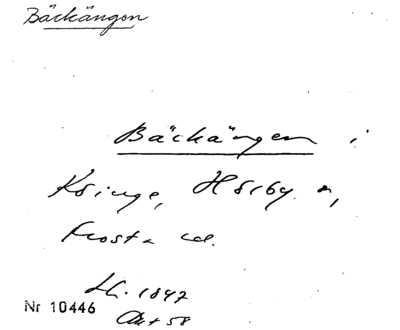 Bäckängen
Bäckängen i
Hörby
Frosta
1847
Nr 10446
Akt 58